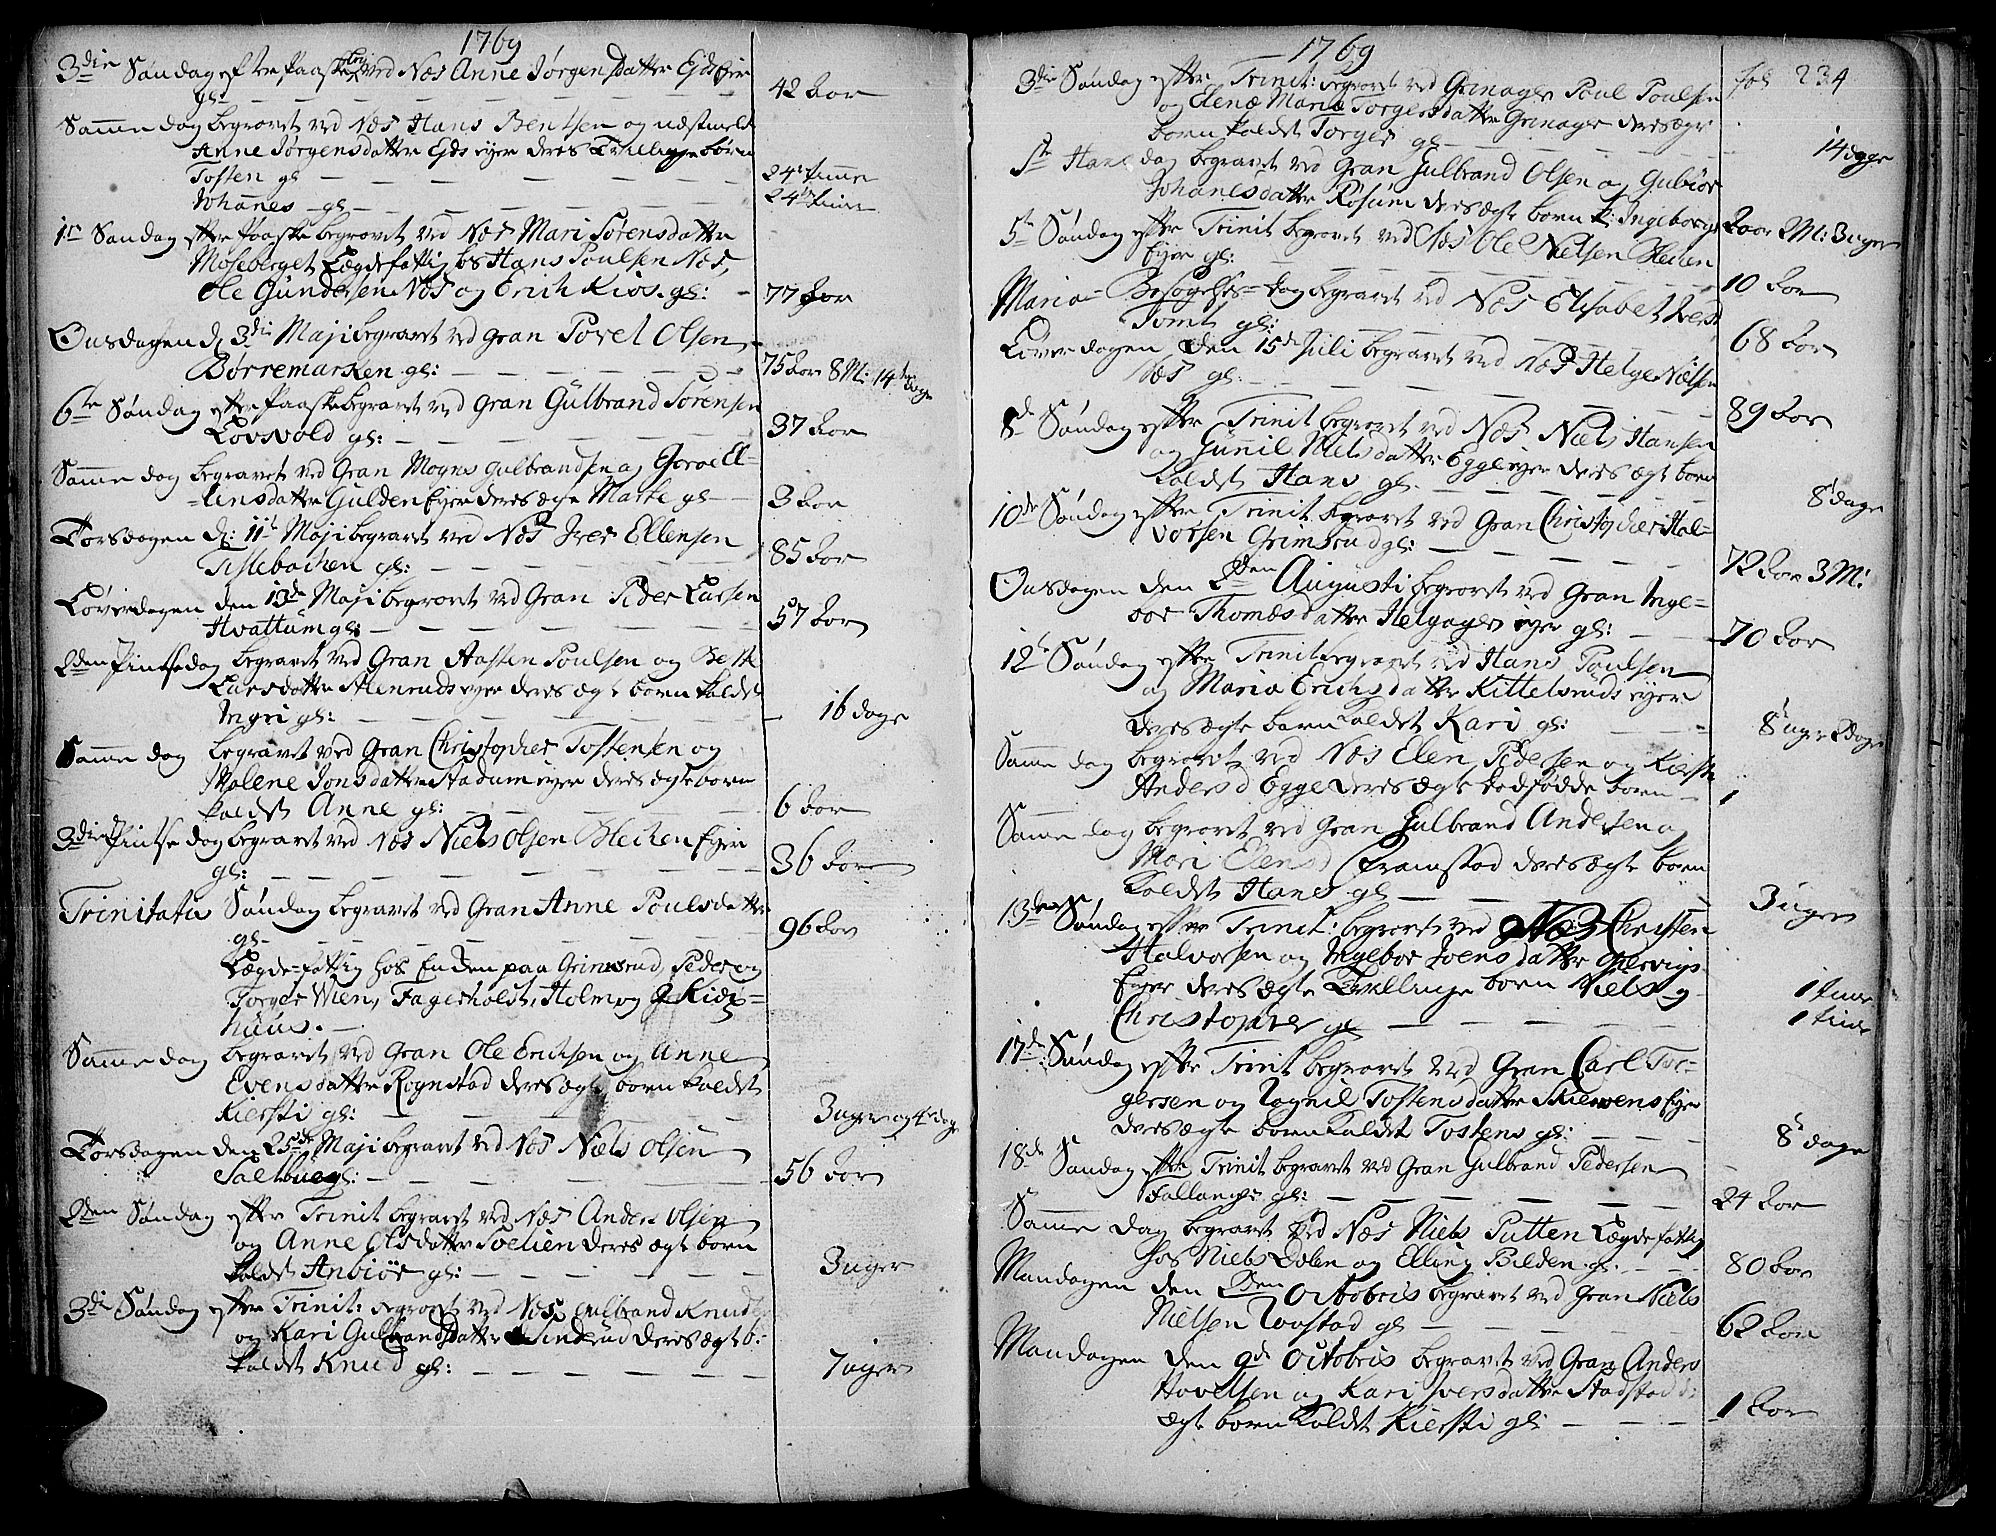 1769
3die Søndag efter Paaske beg: ved Næs Anne Jørgensdatter Egdseyer
gl. 42 Aar
Samme dag begravet ved Næs Hans Bentsen og næstmeldte
Anne Jørgensdatter Egdseyer deres Tvillinge børn
Tosten gl 24 Timme
Johanes gl 24 Timme
Søndag efter Paaske begravet ved Næs Mari Sørensdatter
Moseberget Lægdefattig hos Hans Poulsen Næs,
Ole Gundersen Næs og Erich Kios. gl: 77 Aar
Onsdagen d. 3die Maji begravet ved Gran Povel Olsen
Børremarken gl: 75 Aar 8 M: 14 dage
6te Søndag efter Paaske begravet ved Gran Gulbrand Sørensen
Lovsvold gl: 37 Aar
Samme dag begravet ved Gran Mogns Gulbrandsen og Goroe El=
=lensdatter Gulden Eyer deres ægte Marte gl 3 Aar
Torsdagen d: 11te Maji begravet ved Næs Iver Ellensen
Tislebachen gl: 85 Aar
Løverdagen den 13de Maji begravet ved Gran Peder Larsen
Hvattum gl: 57 Aar
2den Pintsedag begravet ved Gran Aasten Poulsen og Berte
Larsdatter Alenruds eyer deres ægte barn kaldet
Ingri gl: 16 dage
Samme dag begravet ved Gran Christopher Tostensen og
Malene Jonsdatter Stadum eyer deres ægte barn
kaldet Anne gl: 6 Aar
3die Pintse dag begravet ved Næs Niels Olsen Blechen Eyer
gl: 36 Aar
Trinitatis Søndag begravet ved Gran Anne Poulsdatter
gl 96 Aar
Lægdefattig hos Enchen paa Grimsrud, Peder og
Torger Wien, Fagerholst, Holm og
huus.
Samme dag begravet ved Gran Ole Erichsen og Anne
Evensdatter Rognstad deres ægte barn kaldet
Kiersti gl: 3 uger og 4 dage
Torsdagen den 25de Maji begravet ved Næs Niels Olsen
gl: 56 Aar
2den Søndag efter Trinit begravet ved Næs Anders Olsen
og Anne Olsdatter Svelien deres ægte barn
kaldet Anbiør gl: 3 uger
3die Søndag efter Trinit: begravet ved Næs Gulbrand Knuds
og Kari Gulbrandsdatter Sindrud deres ægte b:
kaldet Knud gl: 7 uger
1769
fol 234
3die Søndag efter Trinit: begravet ved Grinager Poul Poulsen
og Elene Maria Torgersdatter Grinager deres ægte
barn kaldet Torger gl 14 dage
St Hans dag begravet ved Gran Gulbrand Olsen og Gubiør
Johanesdatter Røsum deres ægte barn k: Ingeborg
5te Søndag efter Trinit begravet ved Næs Ole Nielsen Blechen
Eyer gl: 10 Aar
Mariæ Besøgelses= dag begravet ved Næs Elisabet Iversd
Tomt gl: 68 Aar
Løverdagen den 15de Juli begravet ved Næs Helge Nielsen
Næs gl: 89 Aar
8de Søndag efter Trinit begravet ved Næs Niels Hansen
og Gunnil Nielsdatter Egge eyer deres ægte barn
kaldet Hans gl. 8 dage
10de Søndag efter Trinit begravet ved Gran Christopher Hal=
vorsen Grimsrud gl: 72 Aar 3 M:
Onsdagen den 2den Augusti begravet ved Gran Inge=
bor Thomesdatter Helgager eyer gl: 70 Aar
12te Søndag efter Trinit begravet ved Hans Poulsen
og Maria Erichsdatter Kittelsruds eyer
deres ægte barn kaldet Kari gl: 8 uger 2 dage
Samme dag begravet ved Næs Elen Pedersen og Kiersti
Andersd Egge deres ægte dødfødde barn
Samme dag begravet ved Gran Gulbrand Andersen og
Mari Elensd Framstad deres ægte barn
kaldet Hans gl 3 uger
13de Søndag efter Trinit: begravet ved Næs Christen
Halvorsen og Ingebor Ivensdatter
Eyer deres ægte Tvillinge børn Niels og 1 Time
Christopher gl 1 Time
17de Søndag efter Trinit begravet ved Gran Carl Tor=
gersen og Rognil Tostensdatter Skiervens Eyer
deres ægte barn kaldet Tostens gl: 8 dage
18de Søndag efter Trinit begravet ved Gran Gulbrand Pedersen
Fallangs: gl: 24 Aar
Samme dag begravet ved Næs Niels Putten Lægdefattig
hos Niels Dølen og Elling Bilden gl. 80 Aar
Mandagen den 2den Octobris begravet ved Gran Niels
Nielsen Rovstad gl 62 Aar
Mandagen den 9de Octobris begravet ved Gran Anders
Hovelsen og Kari Iversdatter Stadstad d:
ægte barn kaldet Kiersti gl: 1 Aar